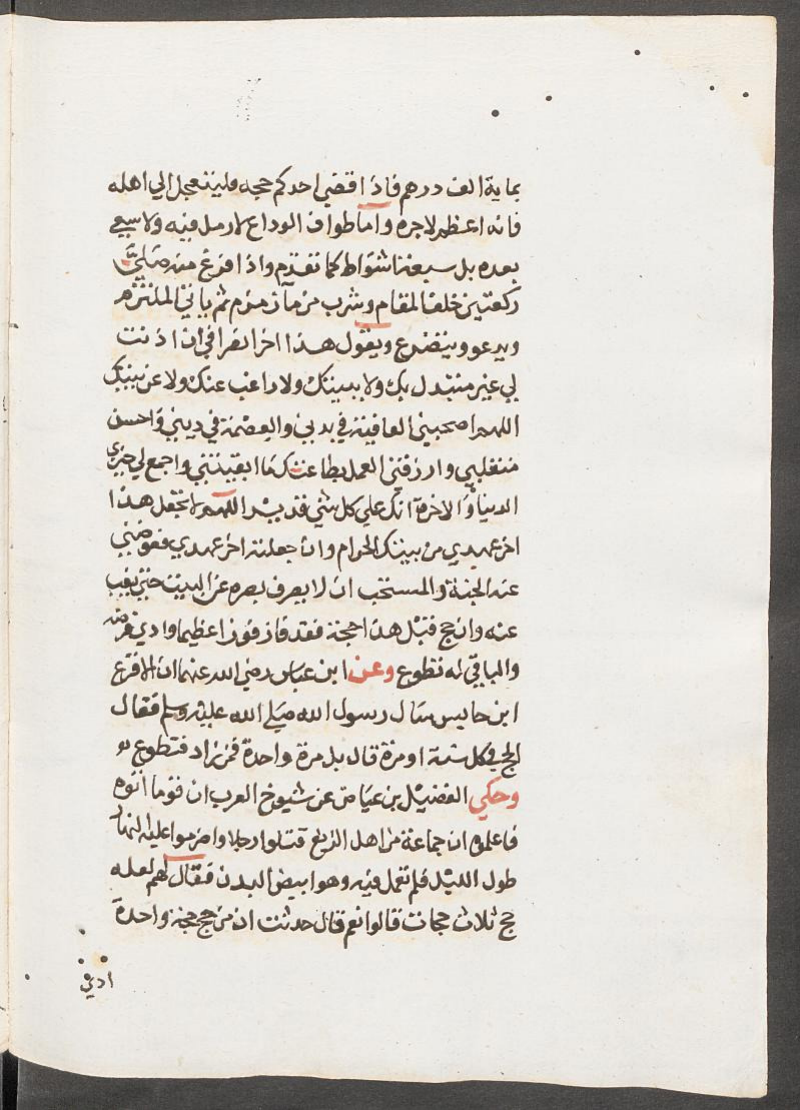 بماية الف درهم فاذا قضي احدكم حجه فليتعجل الي اهله
فانه اعظم لاجره واما طواف الوداع لا رمل فيه ولا سعي
بعده بل سبعة اشواط كما تقدم واذا فرغ منه صلي
ركعتين خلف المقام وشرب من مآ زمزم ثم ياتي الملتزم
ويدعو ويتضرع ويقول هذا اخر انصرافي ان اذنت
لي غير متبدل بك ولا ببيتك ولا راغب عنك ولا عن بيتك
اللهم اصحبني العافية في بدني والعصمة في ديني واحسن
منقلبي وارزقني العمل بطاعتك ما ابقيتني واجمع لي خيري
الدنيا والاخرة انك علي كل شي قدير اللهم لا تجعل هذا
اخر عهدي من بيتك الحرام وان جعلته اخر عهدي فعوضني
عنه الجنة والمستحب ان لا يصرف بصره عن البيت حتي يغيب
عنه وان حج قبل هذا حجة فقد فاز فوزا عظيما وادي فرضه
والباقي له تطوع وعن ابن عباس رضي الله عنهما ان الاقرع
ابن حابس سال رسول الله صلي الله عليه وسلم فقال
الحج في كل سنة او مرة قال بل مرة واحدة فمن زاد فتطوع
وحكي الفضيل بن عياض عن شيوخ العرب ان قوما اتوه
فاعلموه ان جماعة من اهل الزيع قتلوا رجلا واضرموا عليه النار
طول الليل فلم تعمل فيه وهو ابيض البدن فقال لهم لعله
حج ثلاث حجات قالوا نعم قال حدثت ان من حج حجة واحدة
ادي